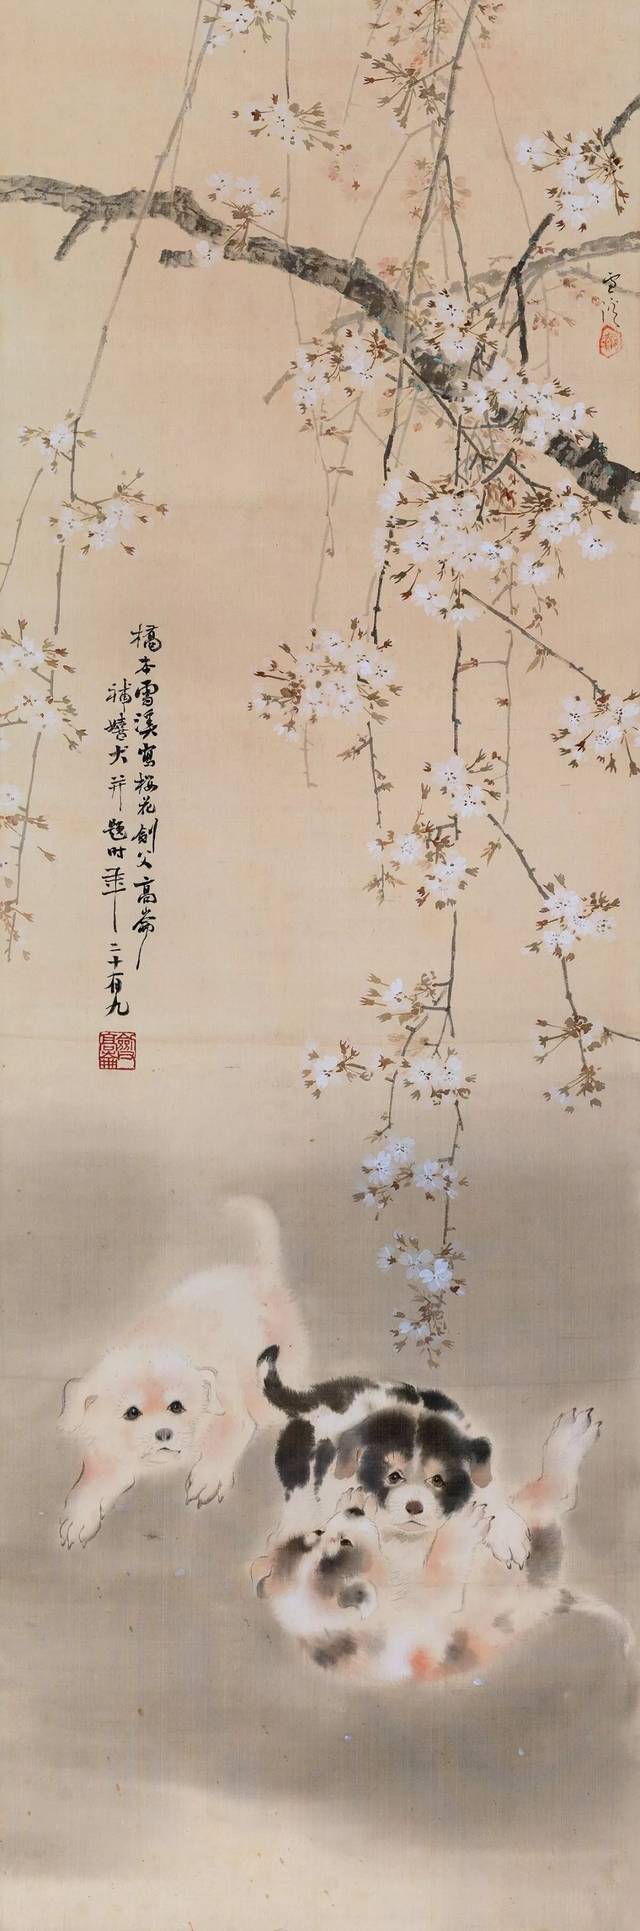 雪溪
橋本雪溪寫桜花劍父高崙
補嬉犬并題时年二十有九